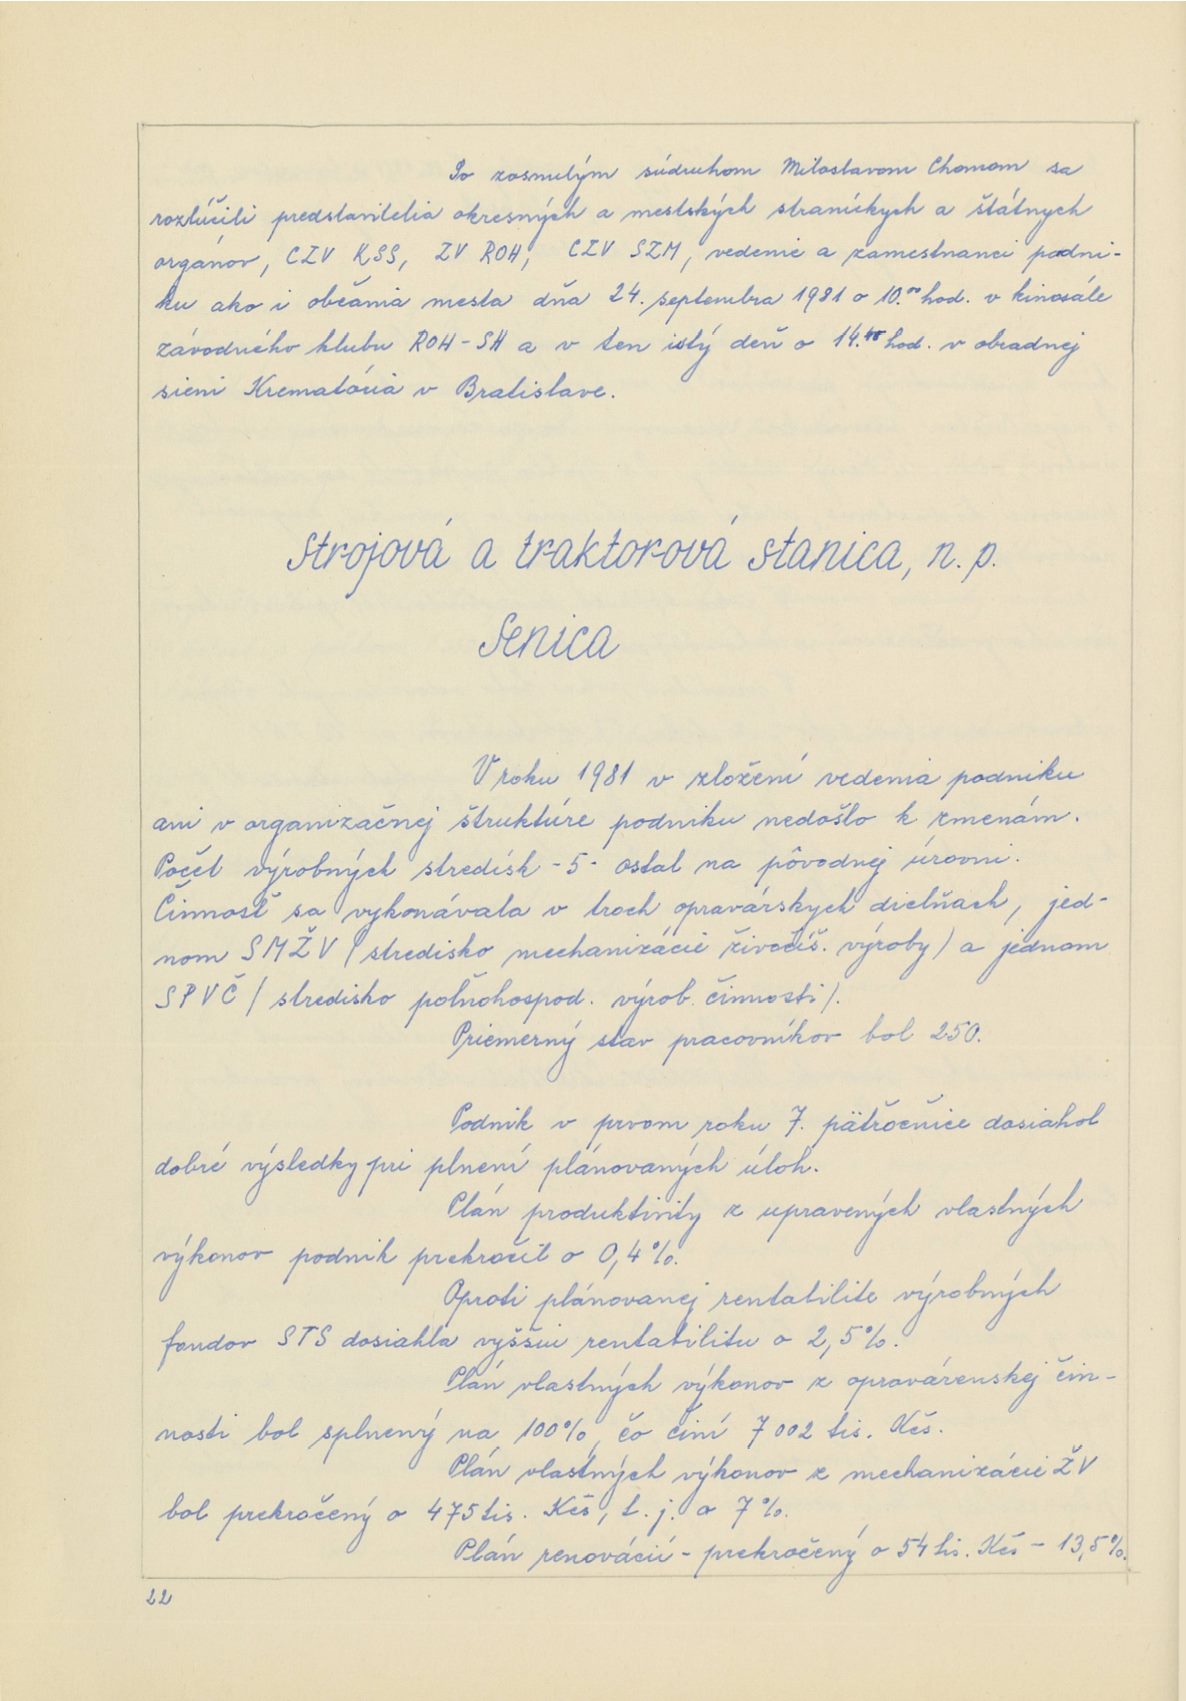 So zosnulým súdruhom Miloslavom Chomom sa
rozlúčili predstavitelia okresných a mestských straníckych a štátnych
orgánov, CZV KSS, ZV ROH, CZV SZM, vedenie a zamestnanci podni-
ku ako i občania mesta dňa 24. septembra 1981 o 10.00 hod. v kinosále
závodného klubu ROH-SH a v ten istý deň o 14.45 hod. v obradnej
sieni Krematória v Bratislave.
Strojová a traktorová stanica, n. p.
Senica
V roku 1981 v zložení vedenia podniku
ani v organizačnej štruktúre podniku nedošlo k zmenám.
Počet výrobných stredísk -5- ostal na pôvodnej úrovni.
Činnosť sa vykonávala v troch opravárskych dielňach, jed-
nom SMŽV /stredisko mechanizácie živočíš. výroby/ a jednom
SPVČ /stredisko poľnohospod. výrob. činnosti/.
Priemerný stav pracovníkov bol 250.
Podnik v prvom roku 7. päťročnice dosiahol
dobré výsledky pri plnení plánovaných úloh.
Plán produktivity z upravených vlastných
výkonov podnik prekročil o 0,4%.
Oproti plánovanej rentabilite výrobných
fondov STS dosiahla vyššiu rentabilitu o 2,5%.
Plán vlastných výkonov z opravárenskej čin-
nosti bol splnený na 100%, čo činí 7 002 tis. Kčs.
Plán vlastných výkonov z mechanizácie ŽV
bol prekročený o 475 tis. Kčs, t. j. o 7%.
Plán renovácií - prekročený o 54 tis. Kčs - 13,5%.
22